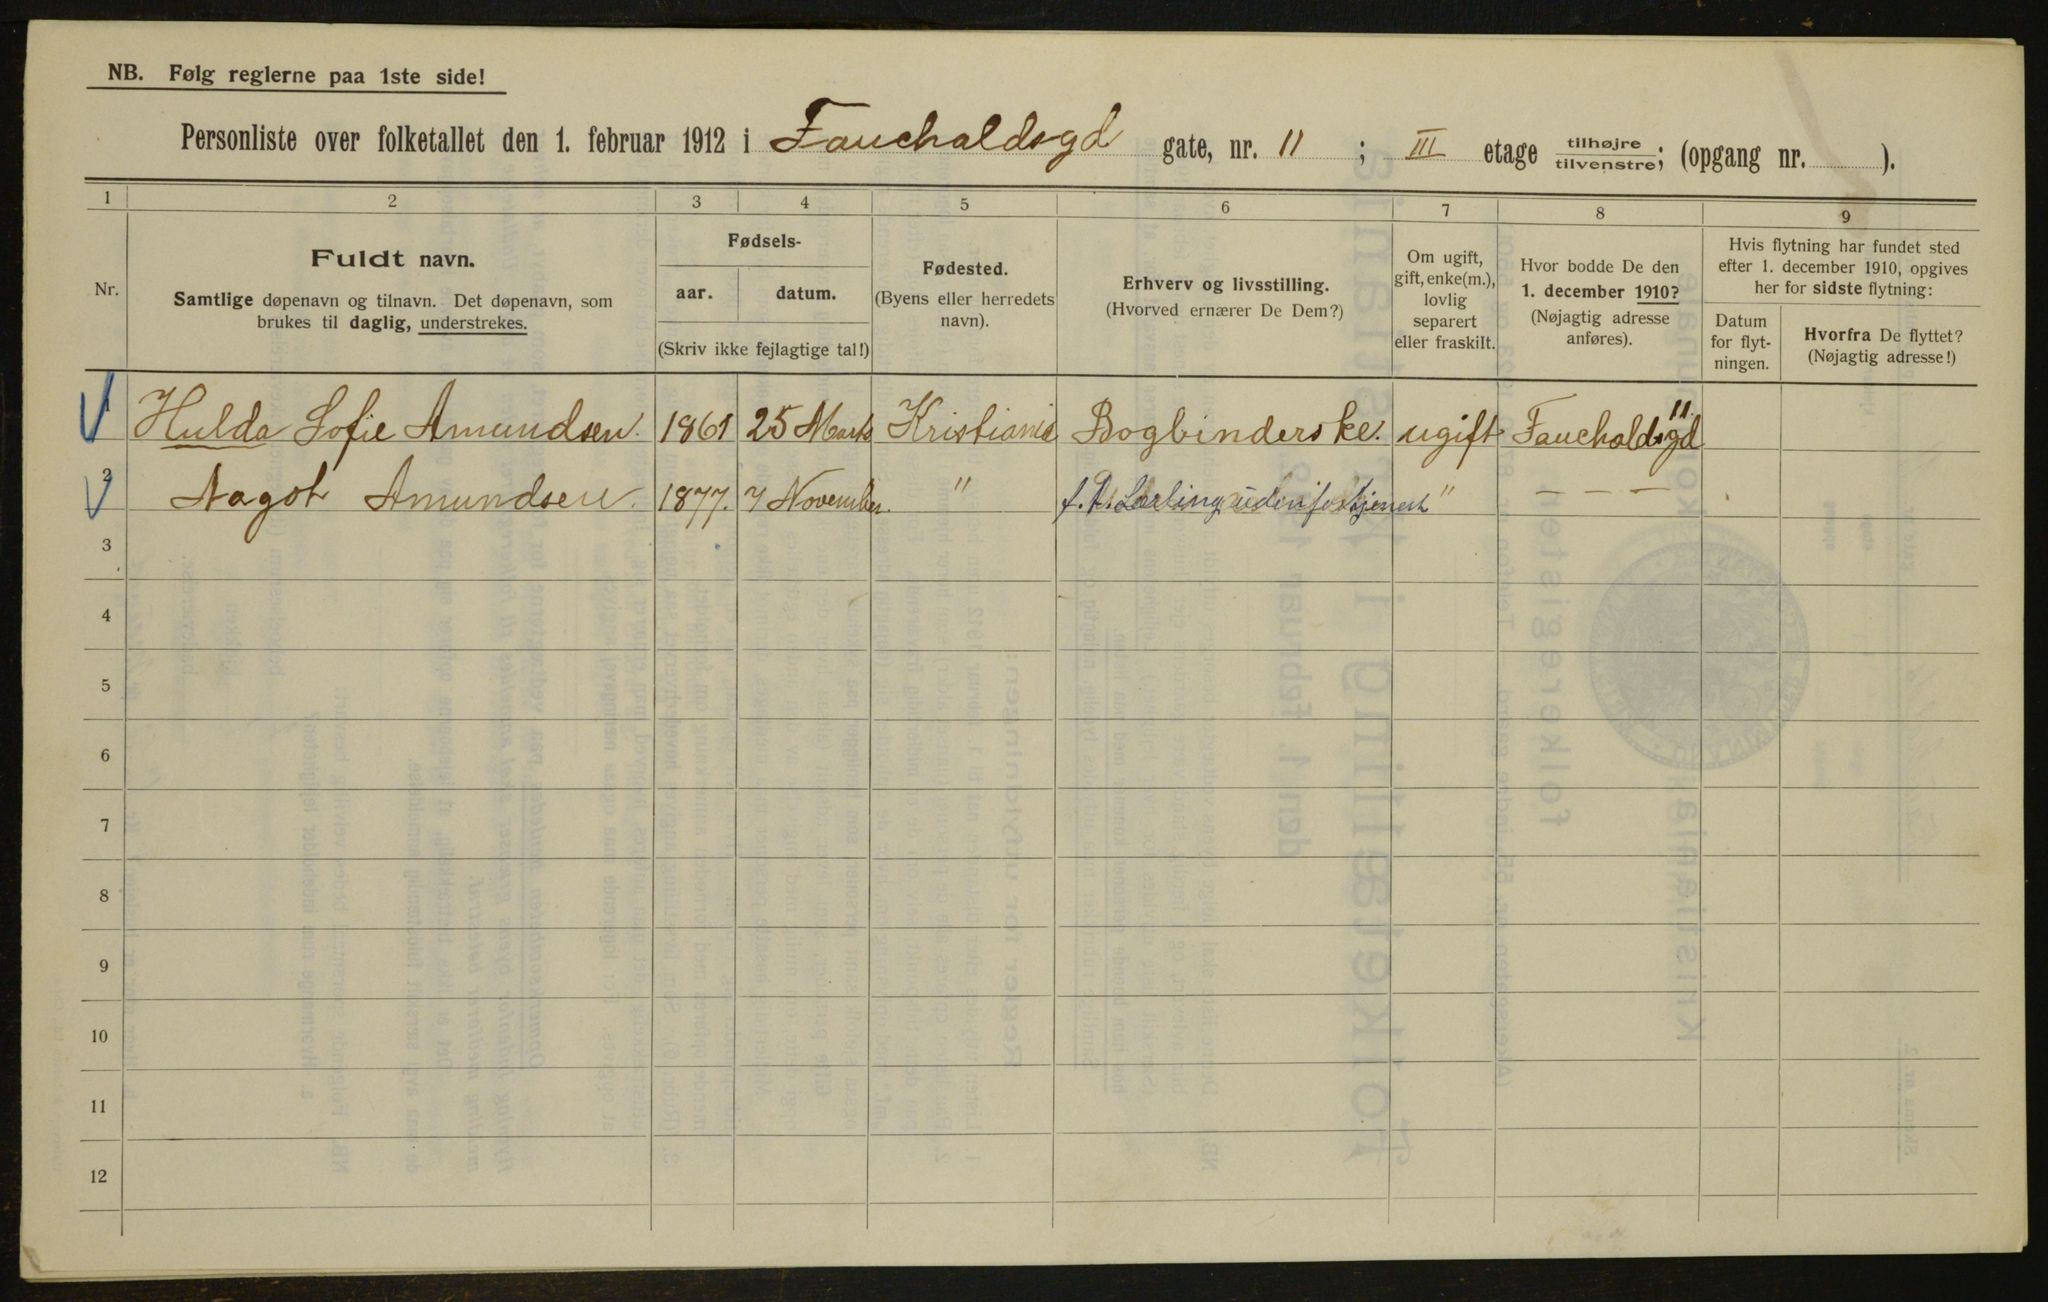 NB. Følg reglerne paa 1ste side!
Personliste over folketallet den 1. februar 1912 i Fauchaldsgd gate, nr. 11 ; III etage tilhøjre tilvenstre; (opgang nr. ).
1 2 3 4 5 6 7 8 9
Nr.
Fuldt navn.
Samtlige døpenavn og tilnavn. Det døpenavn, som
brukes til daglig, understrekes.
Fødsels-
aar. datum.
(Skriv ikke fejlagtige tal!)
Fødested.
(Byens eller herredets
navn).
Erhverv og livsstilling.
(Hvorved ernærer De Dem?)
Om ugift,
gift, enke(m.),
lovlig
separert
eller fraskilt.
Hvor bodde De den
1. december 1910?
(Nøjagtig adresse
anføres).
Hvis flytning har fundet sted
efter 1. december 1910, opgives
her for sidste flytning:
Datum
for flyt-
ningen.
Hvorfra De flyttet?
(Nøjagtig adresse!)
1 Hulda Sofie Amundsen. 1861 25 Marts Kristiania Bogbinderske. ugift Fauchaldsgd 11
2 Nagot Amundsen. 1877. 7 November. " Lærling uden fortjenest " — — —
3
4
5
6
7
8
9
10
11
12